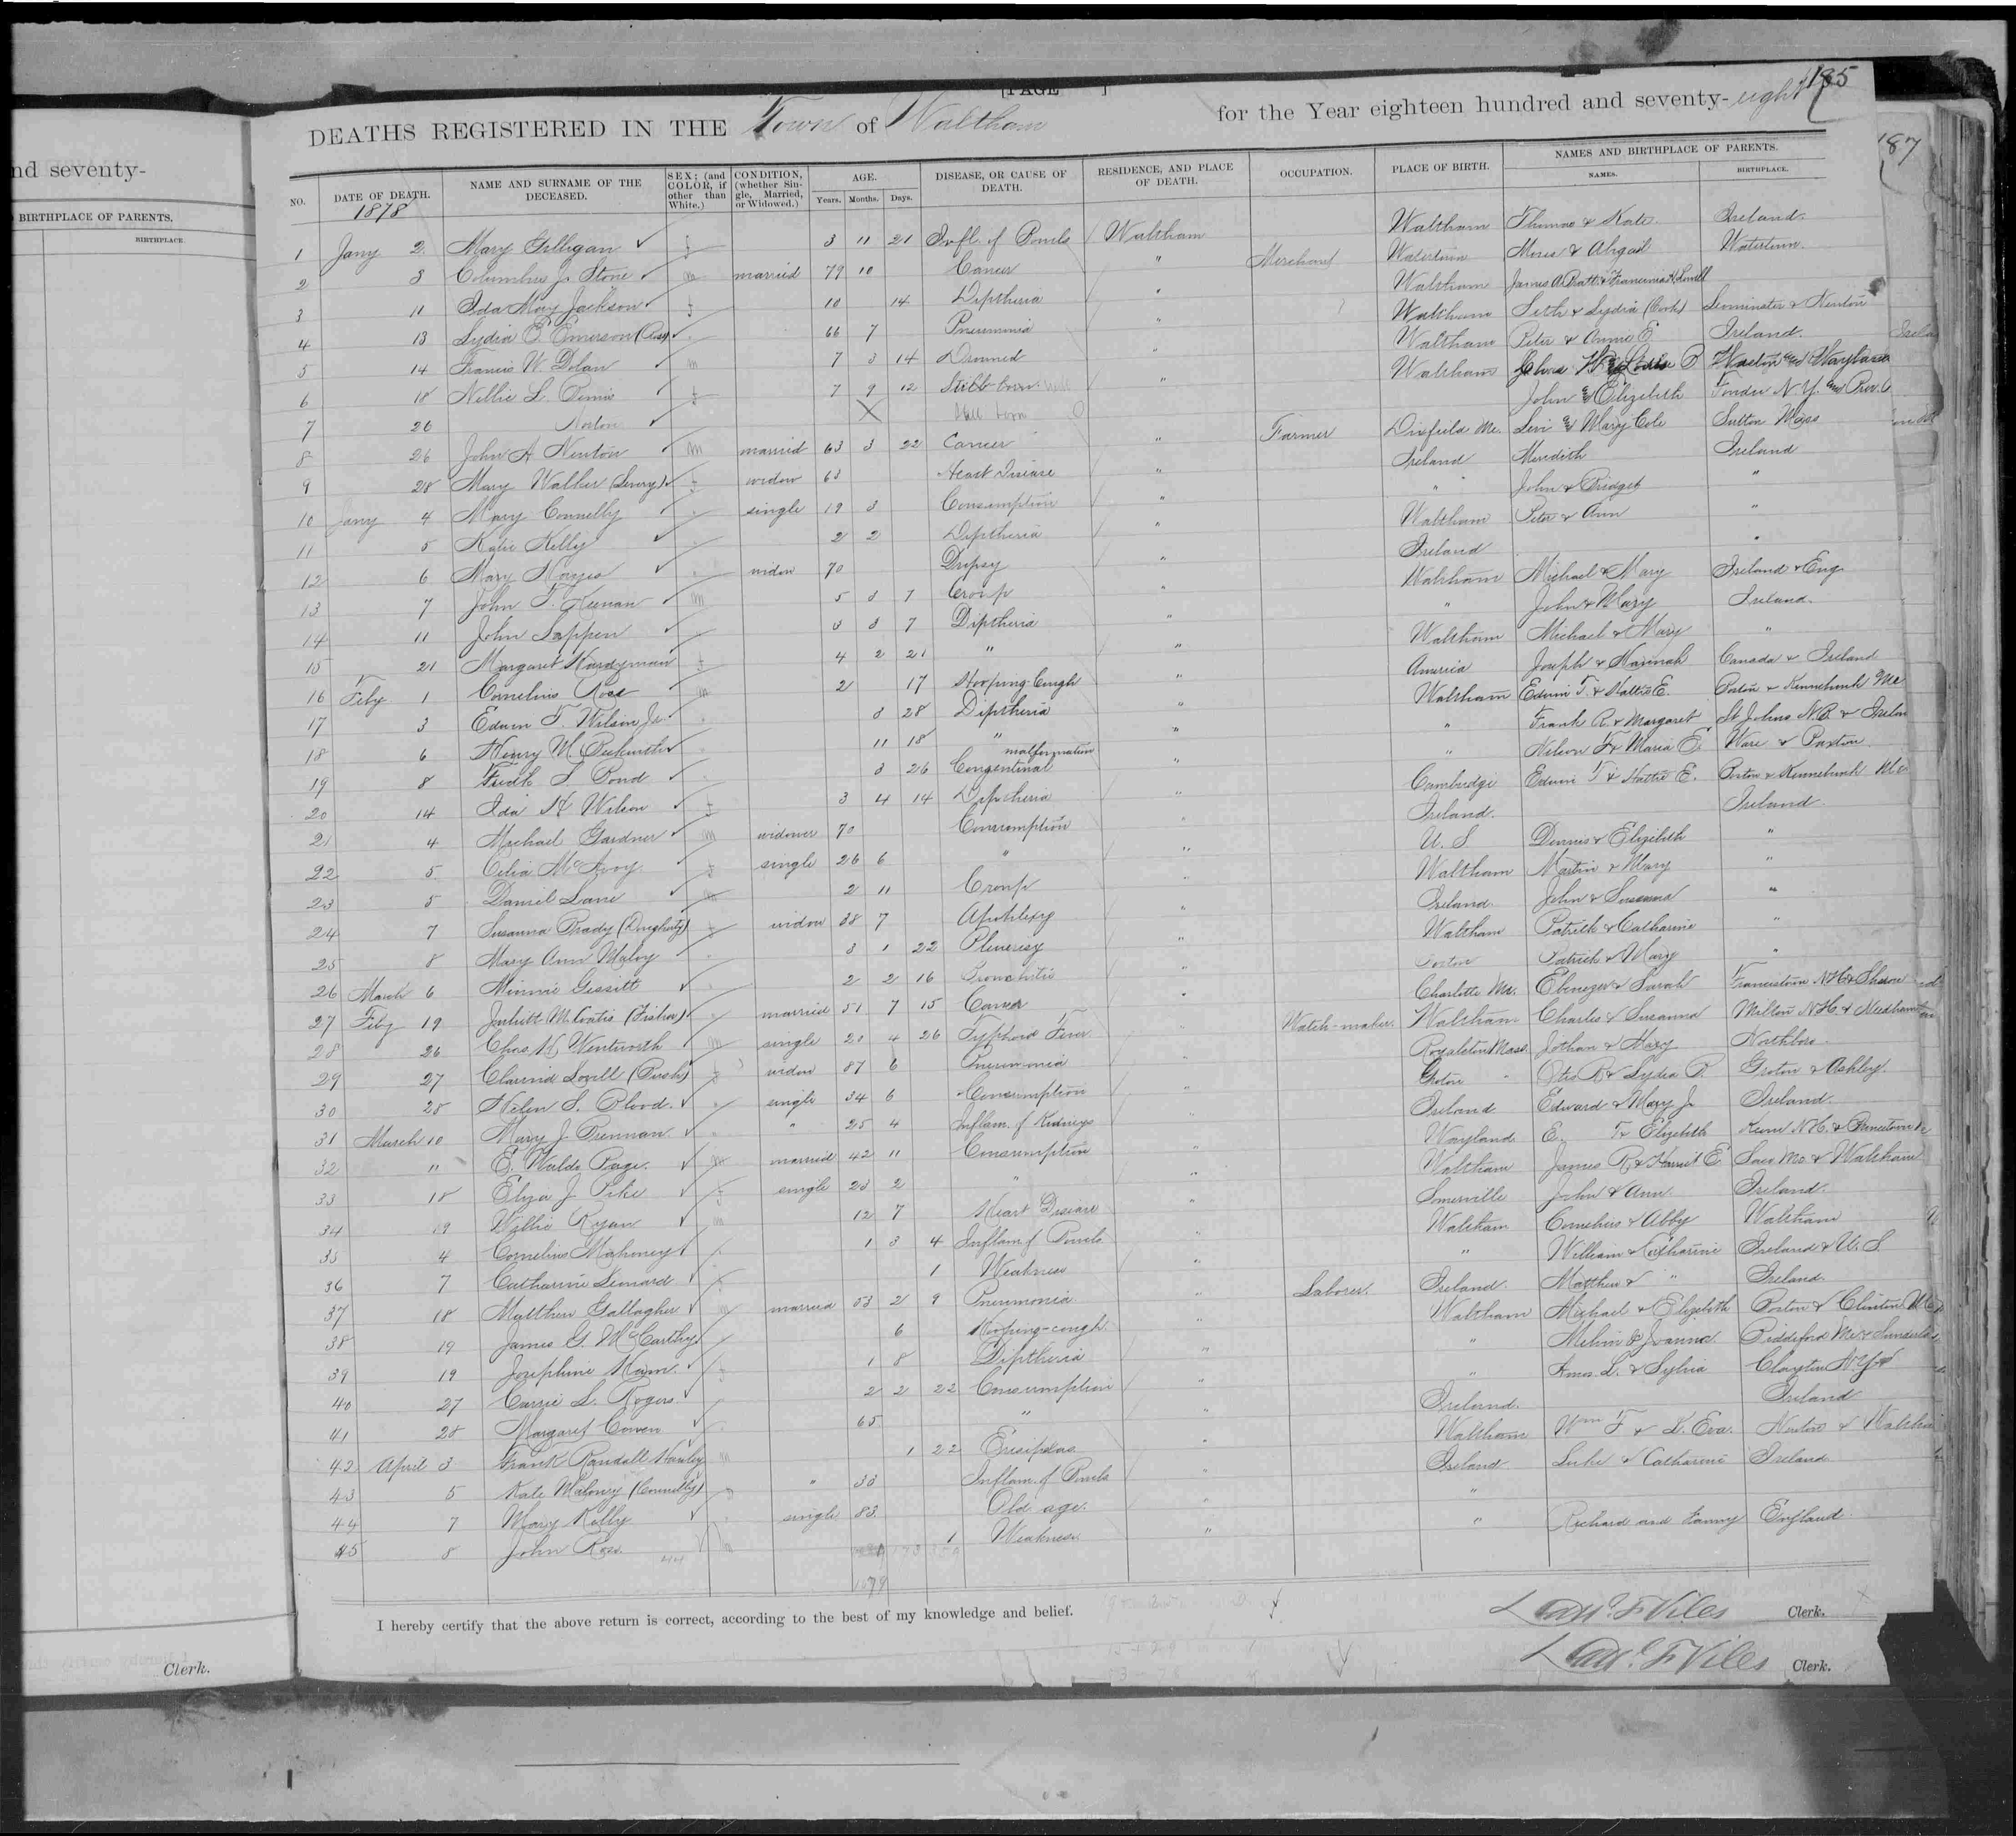 nd seventy-
BIRTHPLACE OF PARENTS.
BIRTHPLACE.
Clerk.
[PAGE ]
185
187
DEATHS REGISTERED IN THE Town of Waltham for the Year eighteen hundred and seventy-eight
NO. DATE OF DEATH. 1878 NAME AND SURNAME OF THE DECEASED. SEX; (and COLOR, if other than White.) CONDITION, (whether Single, Married, or Widowed.) AGE. Years. Months. Days. DISEASE, OR CAUSE OF DEATH. RESIDENCE, AND PLACE OF DEATH. OCCUPATION. PLACE OF BIRTH. NAMES AND BIRTHPLACE OF PARENTS. NAMES. BIRTHPLACE.
1 Jany 2 Mary Gilligan f 3 11 21 Infl. of Bowels Waltham Waltham Thomas & Kate Ireland.
2 3 Columbus J. Stone m married 79 10 Cancer " Merchant Watertown Moses & Abigail Watertown.
3 11 Ida May Jackson f 10 14 Diptheria " Waltham James A Pratt &
4 13 Lydia E. Emerson 66 7 Pneumonia " Waltham Seth & Lydia Leominster & Newton
5 14 Francis W. Dolan m 7 3 14 Drowned " Waltham Peter & Annie E. Ireland.
6 18 Nellie L. f 7 9 12 " Waltham
7 26 Norton X Still born John & Elizabeth Fonda N.Y. and
8 26 John A Newton m married 63 3 22 Cancer " Farmer Dixfield Me. Levi & Mary Cole Sutton Mass
9 28 Mary Walker f widow 63 Heart Disease " Ireland Meredith Ireland
10 Jany 4 Mary Connelly single 19 3 Consumption " " John & Bridget "
11 5 Katie Kelly 2 2 Diptheria " Waltham Peter & Ann "
12 6 Mary Hayes widow 70 Dropsy " Ireland "
13 7 John T. Keenan m 5 3 7 Croup " Waltham Michael & Mary Ireland & Eng
14 11 John Lappen 3 3 7 Diptheria " " John & Mary Ireland.
15 21 Margaret Hardyman f 4 2 21 " " Waltham Michael & Mary "
16 Feby 1 Cornelius Rose m 2 17 Hooping Cough " America Joseph & Hannah Canada & Ireland
17 3 Edwin F. Wilson Jr. 3 28 Diptheria " Waltham Edwin F. & Hattie E. Boston & Kennebunk Me
18 6 Henry M. 11 18 " " " Frank R. & Margaret St Johns N.B. &
19 8 Fredk S. Pond 3 26 Congentinal malformation " " Nelson F & Maria E. Ware & Paxton
20 14 Ida H Wilson f 3 4 14 Diptheria " Cambridge Edwin F & Hattie E. Boston & Kennebunk Me
21 4 Michael Gardner m widower 70 Consumption " Ireland. Ireland
22 5 Celia McAvoy f single 26 6 " " U. S Dennis & Elizabeth "
23 5 Daniel Lane m 2 11 Croup " Waltham Martin & Mary "
24 7 Susanna Brady f widow 38 7 Apoplexy " Ireland John & Susanna "
25 8 Mary Ann Maloy 3 1 22 Pleuresy " Waltham Patrick & Catharine "
26 March 6 Minnie 2 2 16 Bronchitis " Boston Patrick & Mary "
27 Feby 19 M. (Fisher) married 51 7 15 Cancer " Charlotte Me. Ebenezer & Sarah Francistown N.H. & Sharon
28 26 Chas. H. Wentworth m single 20 4 26 Typhoid Fever " Watch-maker. Waltham Charles & Susanna Milton N.H. & Needham
29 27 Lovell f widow 87 6 Pneumonia " Royalston Mass. Jotham & Mary Northboro.
30 28 Helen S. Blood. single 34 6 Consumption " Groton " Otis R & Lydia B. Groton & Ashley.
31 March 10 Mary J. Brennan " 25 4 Inflam. of Kidneys " Ireland Edward & Mary J. Ireland.
32 11 E. Waldo Page. m married 42 11 Consumption " Wayland E. F & Elizabeth Keene N.H. &
33 18 Eliza J. Pike f single 23 2 " " Waltham James R. & Harriet E Saco Me & Waltham
34 19 Willie Ryan m 12 7 Heart Disease " Somerville John & Ann Ireland.
35 4 Cornelius Mahoney 1 3 4 Inflam of Bowels " Waltham Cornelius & Abby Waltham
36 7 Catharine Leonard f 1 Weakness " " William & Catharine Ireland & U. S.
37 18 Matthew Gallagher m married 53 2 9 Pneumonia " Laborer. Ireland. Matthew & " Ireland.
38 19 James G. McCarthy 6 Hooping-cough " Waltham Michael & Elizabeth Boston & Clinton
39 19 Josephine Ham. f 1 8 Diptheria " " Melvin & Joanna Biddeford Me &
40 27 Carrie L. Rogers 2 2 22 Consumption " " Amos L. & Sylvia Clayton N.Y.
41 28 Margaret Cowen 65 " " Ireland. Ireland
42 April 3 Frank Randall m 1 22 Erisipelas " Waltham Wm F & L. Eva. Newton &
43 5 Kate Maloney (Connelly) f " 33 Inflam. of Bowels " Ireland Luke & Catharine Ireland
44 7 Mary Kelly single 83 Old age. " "
45 8 John Ross. m 1 Weakness " " Richard and Fanny England.
44
I hereby certify that the above return is correct, according to the best of my knowledge and belief.
F. Viles Clerk.
F. Viles Clerk.